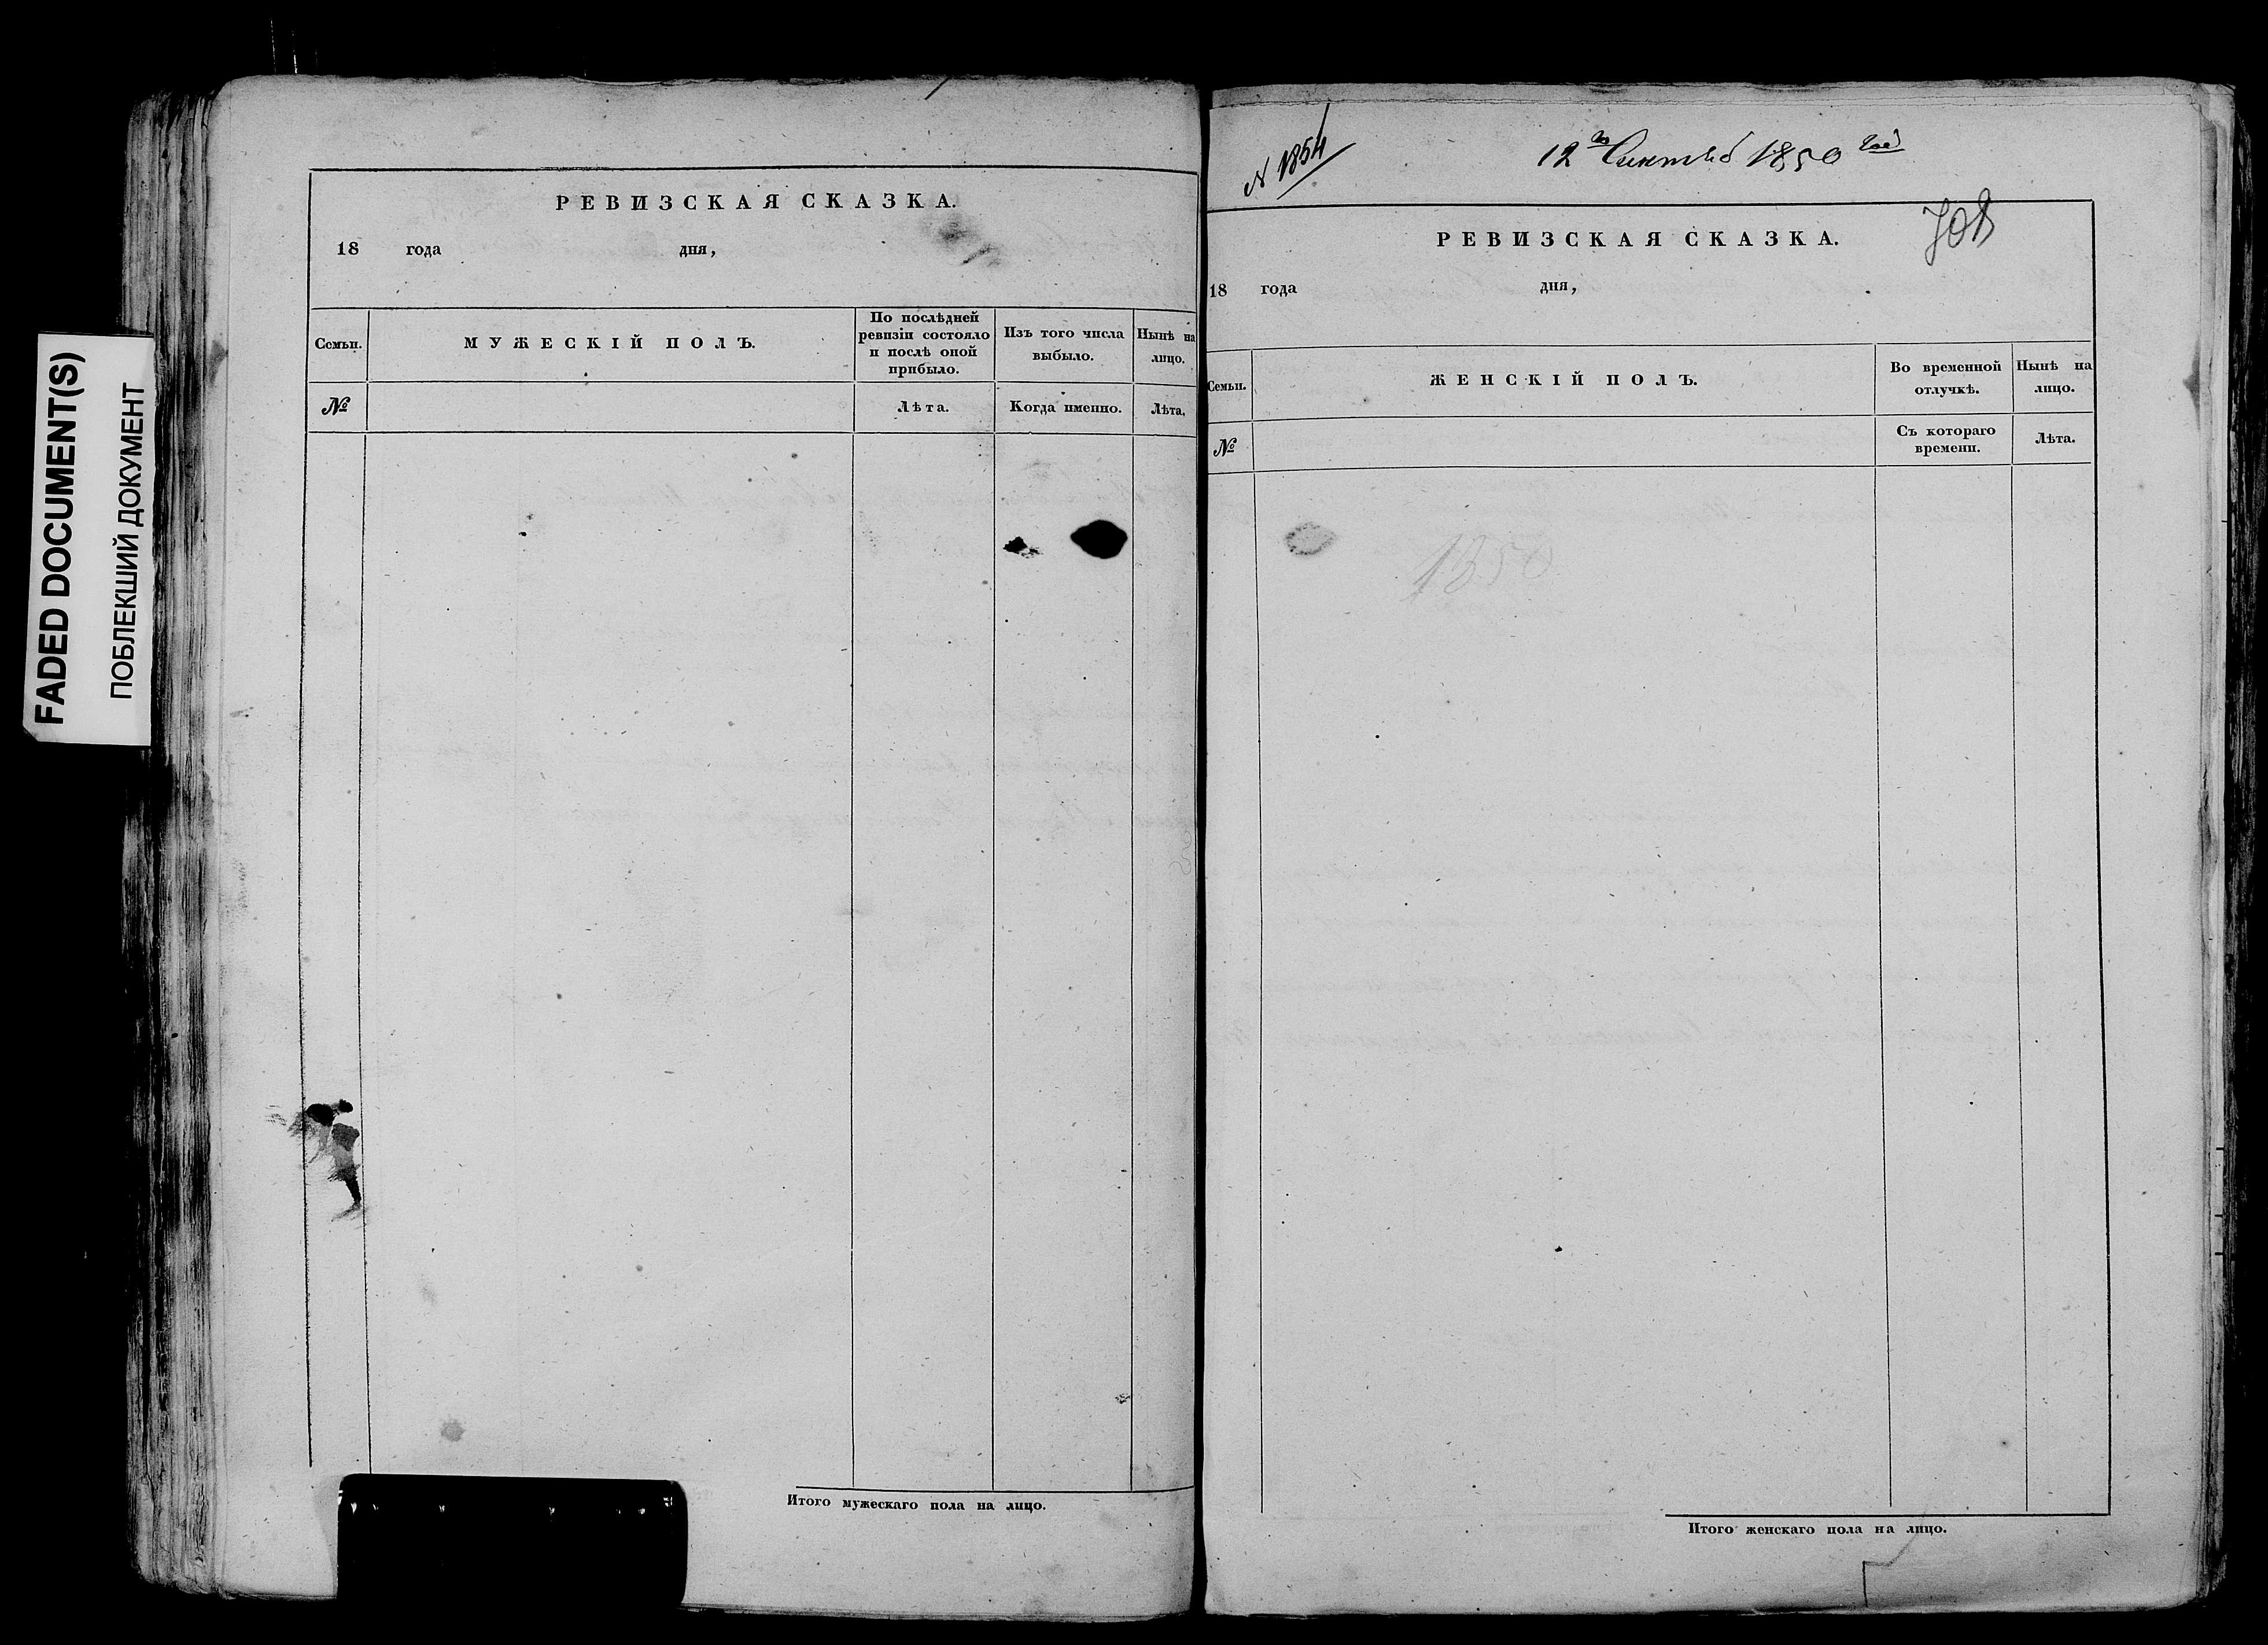 FADED DOCUMENT(S)
ПОБЛЕКШИЙ ДОКУМЕНТ
РЕВИЗСКАЯ СКАЗКА.
18 года дня,
Семьи.
МУЖЕСКІЙ ПОЛЪ.
По послѣдней
ревизіи состояло
и послѣ оной
прибыло.
Изъ того числа
выбыло.
Нынѣ на
лицо.
№
Лѣта.
Когда именно.
Лѣта.
Итого мужескаго пола на лицо.
N 1854
12 1850
РЕВИЗСКАЯ СКАЗКА.
18 года дня,
Семьи.
ЖЕНСКІЙ ПОЛЪ.
Во временной
отлучкѣ.
Нынѣ на
лицо.
№
Съ котораго
времени.
Лѣта.
1850
Итого женскаго пола на лицо.